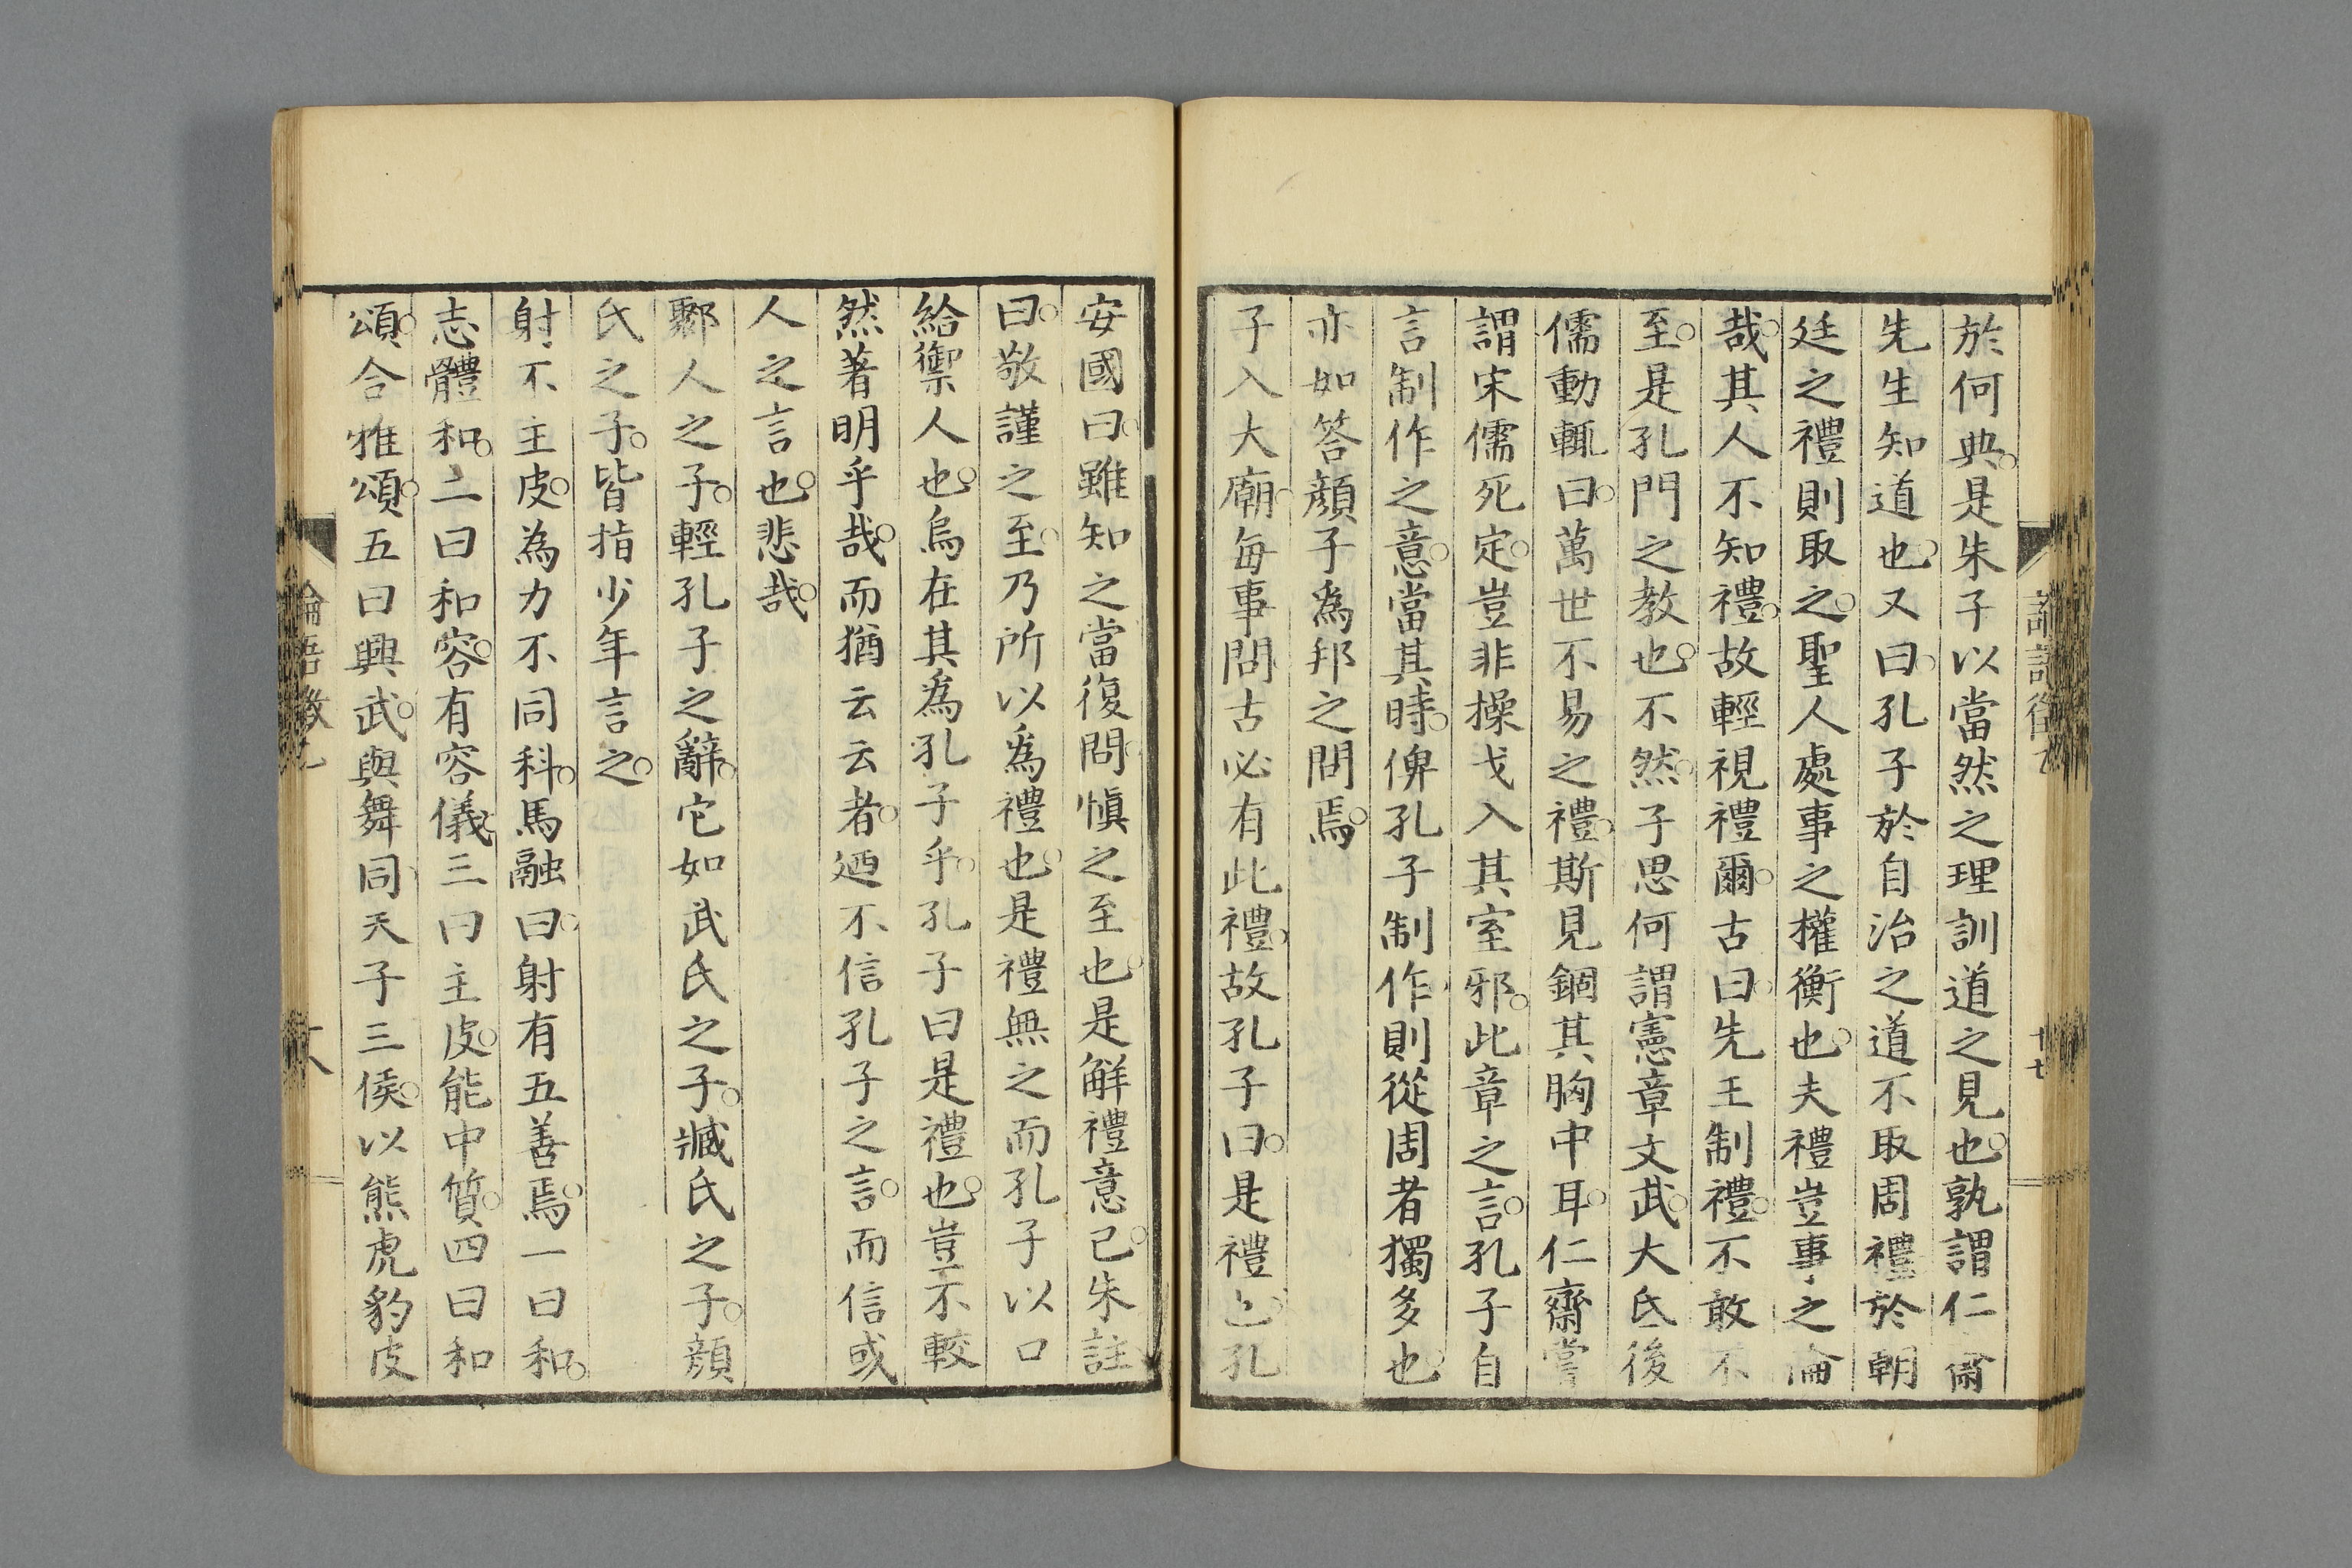 於何典是朱子以當然之理訓道之見也孰謂仁齋
先生知道也又曰孔子於自治之道不取周禮於朝
廷之禮則取之聖人處事之權衡也夫禮豈事之倫
哉其人不知禮故輕視禮爾古曰先王制禮不敢不
至是孔門之教也不然子思何謂憲章文武大氐後
儒動輒曰萬世不易之禮斯見錮其胸中耳仁齋嘗
謂宋儒死定豈非操戈入其室邪此章之言孔子自
言制作之意當其時俾孔子制作則從周者獨多也
亦如答顏子為邦之問焉
子入大廟每事問古必有此禮故孔子曰是禮也孔
安國曰雖知之當復問愼之至也是解禮意已朱註
曰敬謹之至乃所以為禮也是禮無之而孔子以口
給禦人也烏在其為孔子乎孔子曰是禮也豈不較
然著明乎哉而猶云云者迺不信孔子之言而信或
人之言也悲哉
鄹人之子輕孔子之辭它如武氏之子臧氏之子顏
氏之子皆指少年言之
射不主皮為力不同科馬融曰射有五善焉一曰和
志體和二曰和容有容儀三曰主皮能中質四曰和
頌合雅頌五曰興武與舞同天子三侯以熊虎豹皮
十七